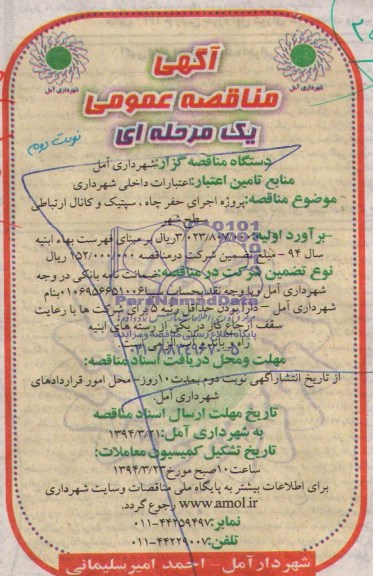 آگهی
مناقصه عمومی
یک مرحله ای
شهرداری آمل
شهرداری آمل
نوبت دوم
دستگاه مناقصه گزار: شهرداری آمل
منابع تامین اعتبار: اعتبارات داخلی شهرداری
موضوع مناقصه: پروژه اجرای حفر چاه ، سپتیک و کانال ارتباطی
سطح شهر
برآورد اولیه: ریال بر مبنای فهرست بهاء ابنیه
سال ۹۴ - مبلغ تضمین شرکت در مناقصه ۱۵۲/۰۰۰/۰۰۰ ریال
نوع تضمین شرکت در مناقصه: ضمانت نامه بانکی در وجه
شهرداری آمل و یا وجه نقد بحساب سیبا ۰۱۰۶۹۵۶۶۵۱۰۰۶ بنام
شهرداری آمل دارا بودن حداقل رتبه ۵ برای شرکت ها با رعایت
سقف ارجاع کار در یکی از رسته های ابنیه
راه و باند و آب الزامی است.
ParsNamadData
مهلت و محل دریافت اسناد مناقصه:
از تاریخ انتشار آگهی نوبت دوم بمدت ۱۰ روز - محل امور قراردادهای
شهرداری آمل.
تاریخ مهلت ارسال اسناد مناقصه
به شهرداری آمل: ۱۳۹۴/۳/۲۱
تاریخ تشکیل کمیسیون معاملات:
ساعت ۱۰ صبح مورخ ۱۳۹۴/۳/۲۳
برای اطلاعات بیشتر به پایگاه ملی مناقصات و سایت شهرداری
www.amol.ir رجوع گردد.
نمابر: ۴۴۲۵۹۴۹۷-۰۱۱
تلفن: ۴۴۲۲۹۰۰۷-۰۱۱
شهردار آمل - احمد امیرسلیمانی